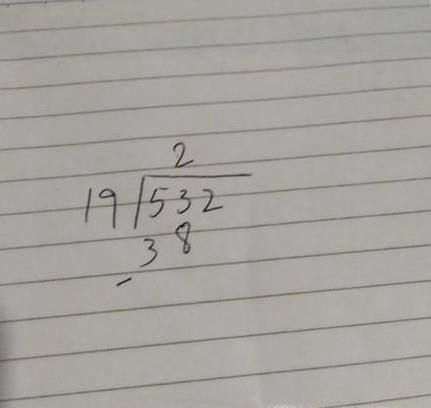 2
19 532
38
-